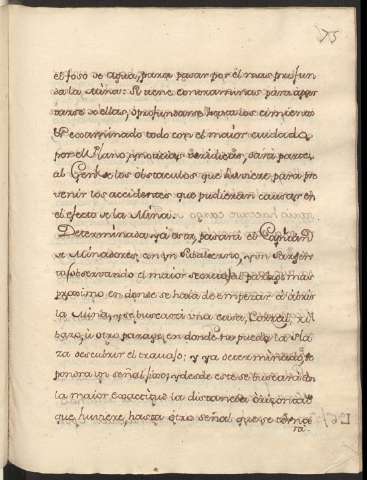 75
el foso de agua, para pasar por él mas profun
da la Mina: Si tiene contraminas para apar
tarse de ellas, ó profundarse hasta los cimientos
Y examinado todo con el maior cuidado,
por el Plano, y noticias veridicas, dará parte
al Genl. de los obstaculos que huviere para pre
venir los accidentes que pudieren causar en
el efecto de la Mina.
Determinada ya esta, pasará el Capitan
de Minadores con un Subalterno, y un Sargen
to observando el maior secreto al parage mas
proximo en donde se haia de empezar á abrir
la Mina, y se buscará una casa,
bazo, ú otro parage, en donde no pueda la Pla
za descubrir el travajo; y ya determinado, se
pondrá un señal fixo, y desde este se buscará con
la maior exactitud la distancia orizontal
que huviere, hasta otro señal que se
ra